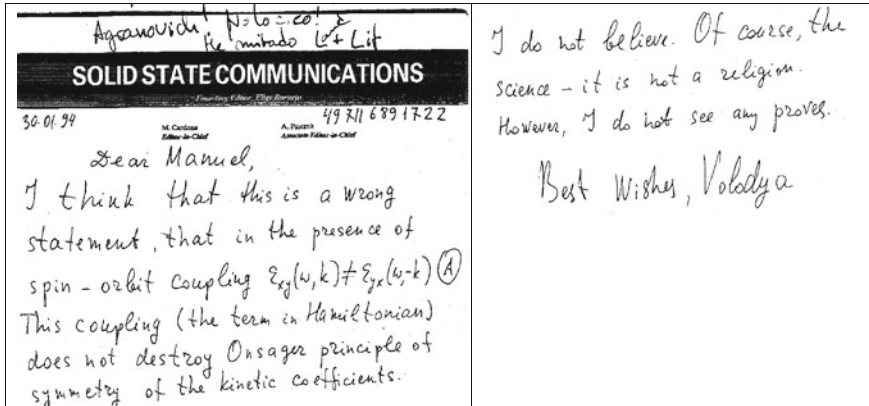 Agranovich!
He mirado L + Lif
SOLID STATE COMMUNICATIONS
Founding Editor: Elias Burstein
30.01.94
49 711 689 1722
M. Cardona
Editor-in-Chief
A. Pinczuk
Associate Editor-in-Chief
Dear Manuel,
I think that this is a wrong
statement, that in the presence of
spin-orbit coupling εxy(ω,k)≠εyx(ω,-k) Ⓐ
This coupling (the term in Hamiltonian)
does not destroy Onsager principle of
symmetry of the kinetic coefficients.
I do not believe. Of course, the
science - it is not a religion.
However, I do not see any proves.
Best Wishes, Volodya